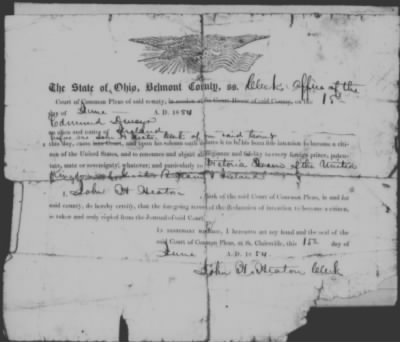 The State of Ohio, Belmont County, ss. Clerks Office of the
Court of Common Pleas of said county, in session at the Court House of said County, on the 15th
day of June A. D. 1854
Edmund
an alien and native of Ireland
before me John H Heaton, Clerk of said Court
this day, came into Court, and upon his solemn oath declares it to be his bona fide intention to become a citi-
zen of the United States, and to renounce and abjure all allegiance and fidelity to every foreign prince, poten-
tate, state or sovereignty, whatever, and particularly to Victoria Queen of the United
Kingdom of Great Britain & Ireland
I, John H Heaton, Clerk of the said Court of Common Pleas, in and for
said county, do hereby certify, that the foregoing record of the declaration of intention to become a citizen,
is taken and truly copied from the Journal of said Court.
In testimony whereof, I hereunto set my hand and the seal of the
said Court of Common Pleas, at St. Clairsville, this 15th day of
June A. D. 1854.
John H. Heaton Clerk